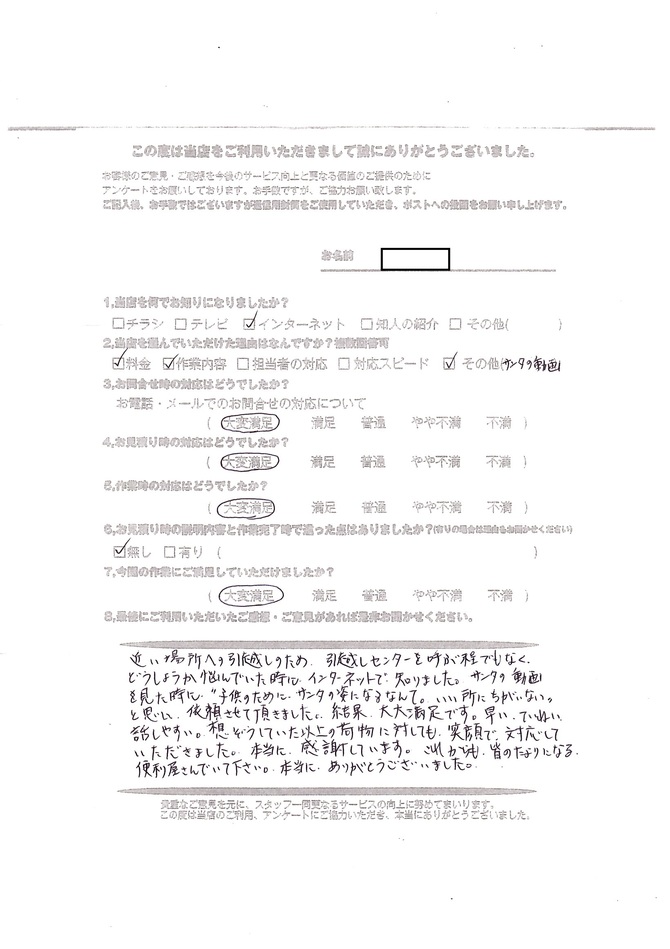 この度は当店をご利用いただきまして誠にありがとうございました。
お客様のご意見・ご感想を今後のサービス向上と更なる価値のご提供のために
アンケートをお願いしております。お手数ですが、ご協力お願い致します。
ご記入後、お手数ではございますが返信用封筒をご使用していただき、ポストへの投函をお願い申し上げます。
お名前
1,当店を何でお知りになりましたか?
□チラシ □テレビ ☑インターネット □知人の紹介 □その他( )
2,当店を選んでいただけた理由はなんですか?複数回答可
☑料金 ☑作業内容 □担当者の対応 □対応スピード ☑その他(サンタの動画)
3,お問合せ時の対応はどうでしたか?
お電話・メールでのお問合せの対応について
( 大変満足 満足 普通 やや不満 不満 )
4,お見積り時の対応はどうでしたか?
( 大変満足 満足 普通 やや不満 不満 )
5,作業時の対応はどうでしたか?
( 大変満足 満足 普通 やや不満 不満 )
6,お見積り時の説明内容と作業完了時で違った点はありましたか?(有りの場合は理由もお聞かせください)
☑無し □有り ( )
7,今回の作業にご満足していただけましたか?
( 大変満足 満足 普通 やや不満 不満 )
8,最後にご利用いただいたご感想・ご意見があれば是非お聞かせください。
近い場所への引越しのため、引越しセンターを呼ぶ程でもなく、
どうしようか悩んでいた時に、インターネットで知りました。サンタの動画
を見た時に、"子供のために、サンタの姿になるなんて。いい所にちがいない。
と思い、依頼させて頂きました。結果、大大満足です。早い、ていねい、
話しやすい。想ぞうしていた以上の荷物に対しても、笑顔で対応して
いただきました。本当に、感謝しています。これからも、皆のたよりになる、
便利屋さんでいて下さい。本当に、ありがとうございました。
貴重なご意見を元に、スタッフ一同更なるサービスの向上に努めてまいります。
この度は当店のご利用、アンケートにご協力いただき、本当にありがとうございました。